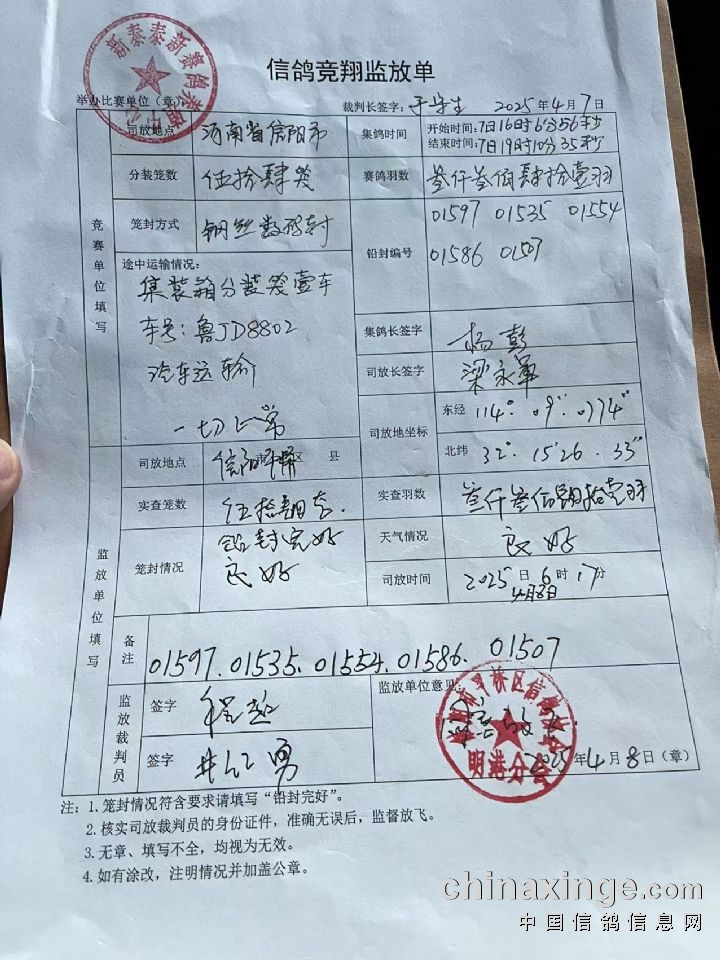 信鸽竞翔监放单
举办比赛单位（章）： 裁判长签字： 2025年4月7日
竞赛单位填写
司放地点 河南省信阳市 集鸽时间 开始时间:7日16时6分56秒
结束时间:7日19时10分35秒
分装笼数 伍拾肆笼 赛鸽羽数 叁仟叁佰肆拾壹羽
笼封方式 钢丝数码封 铅封编号 01597 01535 01554
01586 01507
途中运输情况：
集装箱分装笼壹车
车号：鲁JD8802
汽车运输
一切正常
集鸽长签字 杨彭
司放长签字 梁永军
司放地坐标 东经 114° 09' 0774"
北纬 32° 15'26.33"
监放单位填写
司放地点 信阳 市 区 县
实查笼数 伍拾肆笼 实查羽数 叁仟叁佰肆拾壹羽
笼封情况 铅封完好
良好
天气情况 良好
司放时间 2025 日6时17分
4月8日
备注 01597.01535.01554.01586.01507
监放裁判员
签字
签字
监放单位意见：
2025年4月8日（章）
明港分会
注：1.笼封情况符合要求请填写“铅封完好”。
2.核实司放裁判员的身份证件，准确无误后，监督放飞。
3.无章、填写不全，均视为无效。
4.如有涂改，注明情况并加盖公章。
chinaxinge.com
中国信鸽信息网